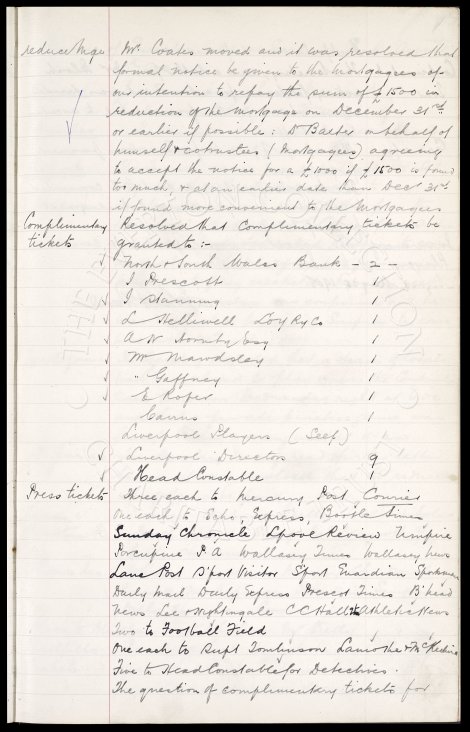 reduce Mge Mr. Coates moved and it was resolved that
formal notice be given to the mortgagees of
our intention to repay the sum of £1500 in
reduction of the mortgage on December 31st
or earlier if possible: Dr Baxter on behalf of
himself & cotrustees (Mortgagees) agreeing
to accept the notice for a £1000 if £1500 is found
too much, & at an earlier date than Decr 31st
if found more convenient to the Mortgagees
Complimentary tickets Resolved that Complimentary tickets be
granted to :-
North & South Wales Bank - 2 -
J Prescott 1
J Stanning 1
L Helliwell L&Y Ry Co 1
A N Hornby Esq 1
Mr Mawdsley 1
" Gaffney 1
E Roper 1
Cairns 1
Liverpool Players (Seel)
Liverpool Directors 9
Head Constable 1
Press tickets Three each to Mercury Post Courier
One each to Echo, Express, Bootle Times
Sunday Chronicle Lpool Review Umpire
Porcupine P A Wallasey Times Wallasey News
Lanc Post S'port Visitor S'port Guardian Sportsman
Daily Mail Daily Express Prescot Times B'head
News Lee & Nightingale C C Hall Athletic News
Two to Football Field
One each to Supt Tomlinson
Five to Head Constable for Detectives.
The question of complimentary tickets for